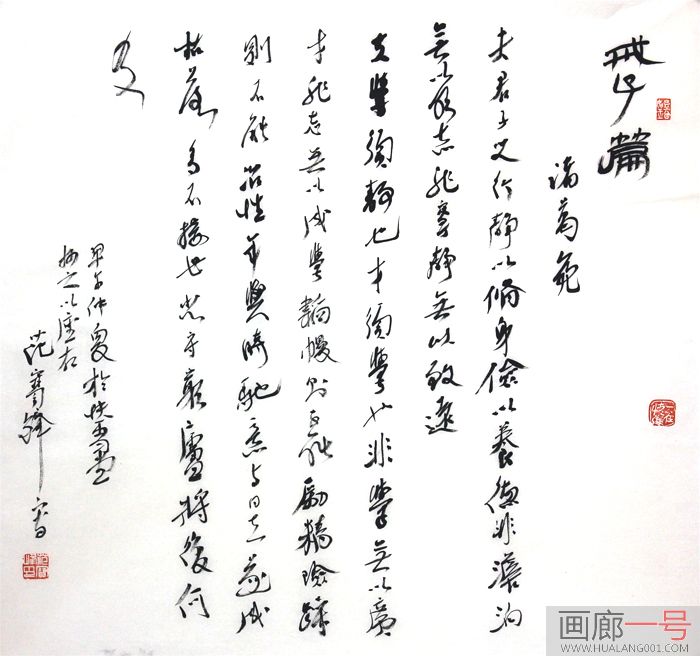 戒子篇
諸葛亮
夫君子之行靜以脩身儉以養德非澹泊
無以明志非寧靜無以致遠
夫學須靜也才須學也非學無以廣
才非志無以成學韜慢則不能勵精險躁
則不能治性年與時馳意與日去遂成
枯落多不接世悲守窮廬將復何
及
甲午仲夏於
抄之以座右
范 鋒 書
画廊一号
WWW.HUALANG001.COM